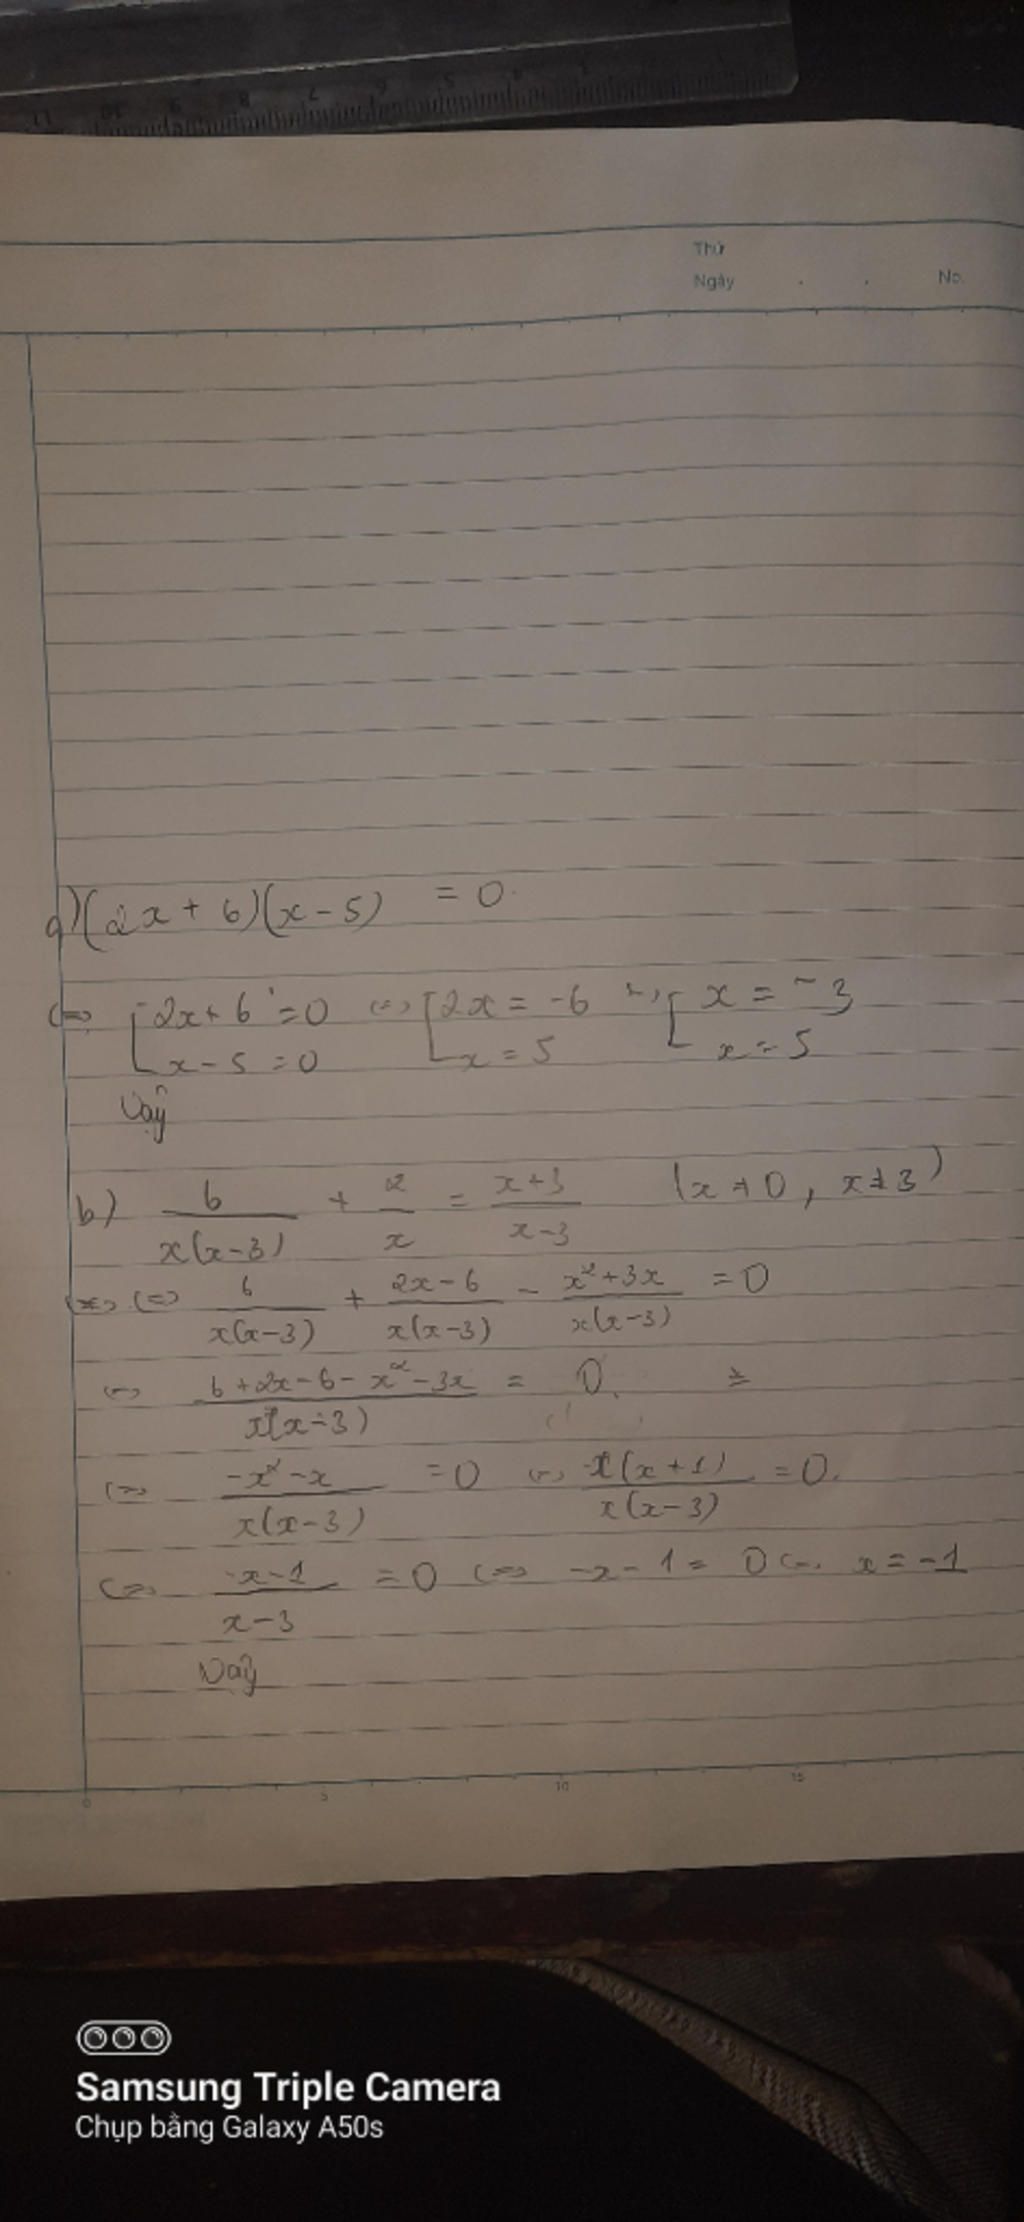 11 10 9 8 7 6 5 4
Thứ
Ngày . . No.
a) (2x + 6)(x - 5) = 0.
<=> [2x + 6 = 0 <=> [2x = -6 <=> [x = -3
x - 5 = 0 x = 5 x = 5
Vậy
b) 6/x(x-3) + 2/x = x+3/x-3 (x ≠ 0, x ≠ 3)
<=> 6/x(x-3) + 2x-6/x(x-3) - x²+3x/x(x-3) = 0
<=> 6+2x-6-x²-3x/x(x-3) = 0.
<=> -x²-x/x(x-3) = 0 <=> -x(x+1)/x(x-3) = 0.
<=> -x-1/x-3 = 0 <=> -x-1 = 0 <=> x = -1
Vậy
0 5 10 15
Samsung Triple Camera
Chụp bằng Galaxy A50s